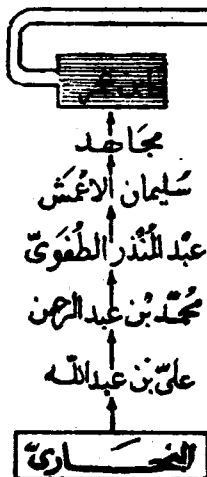 مجَاهد
سُليمان الاعْمَش
عبْد المُنْذر الطُفَوىّ
محُمّد بْن عبد الرحمن
علىّ بْن عبد اللّه
البخَارىّ